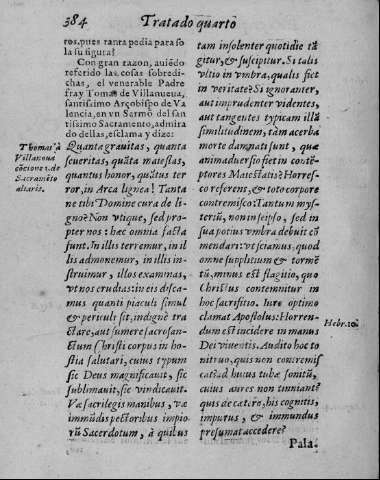 384
Tratado quarto
ros, pues tanta pedia para so
la su figura!
Con gran razon, auiẽdo
referido las cosas sobredi-
chas, el venerable Padre
fray Tomas de Villanueua,
santissimo Arçobispo de Va
lencia, en vn Sermõ del san
tissimo Sacramento, admira
do dellas, esclama y dize:
Quanta grauitas, quanta
seueritas, quãta maiestas,
quantus honor, quãtus ter
ror, in Arca lignea! Tanta
ne tibi Domine cura de li-
gno? Non vtique, sed pro-
pter nos: hæc omnia facta
sunt. In illis terremur, in il
lis admonemur, in illis in-
struimur, illos examinas,
vt nos erudias: in eis disca-
mus quanti piaculi simul
& periculi sit, indignè tra
ctare, aut sumere sacrosan-
ctum Christi corpus in ho-
stia salutari, cuius typum
sic Deus magnificauit, sic
sublimauit, sic vindicauit.
Væ sacrilegis manibus, væ
immũdis pectoribus impio
rũ Sacerdotum, à quibus
Thomas à
Villanoua
cõcione 1. de
Sacramẽto
altaris.
tam insolenter quotidie tã
gitur, & suscipitur. Si talis
vltio in vmbra, qualis fiet
in veritate? Si ignoranter,
aut imprudenter videntes,
aut tangentes typicam illã
similitudinem, tãm acerba
morte damnati sunt, quæ
animaduersio fiet in contẽ-
ptores Maiestatis? Horres-
co referens, & toto corpore
contremisco: Tantum my-
steriũ, non in seipso, sed in
sua potius vmbra debuit cõ
mendari: vt sciamus, quod
omne supplitium & tormẽ
tũ, minus est flagitio, quo
Christus contemnitur in
hoc sacrifitio. Iure optimo
clamat Apostolus: Horren-
dum est incidere in manus
Dei viuentis. Audito hoc to
nitruo, quis non contremis
cat? ad huius tubæ sonitũ,
cuius aures non tinniant?
quis de cætero, his cognitis,
impurus, & immundus
presumat accedere?
Hebr. 10.
Pala.